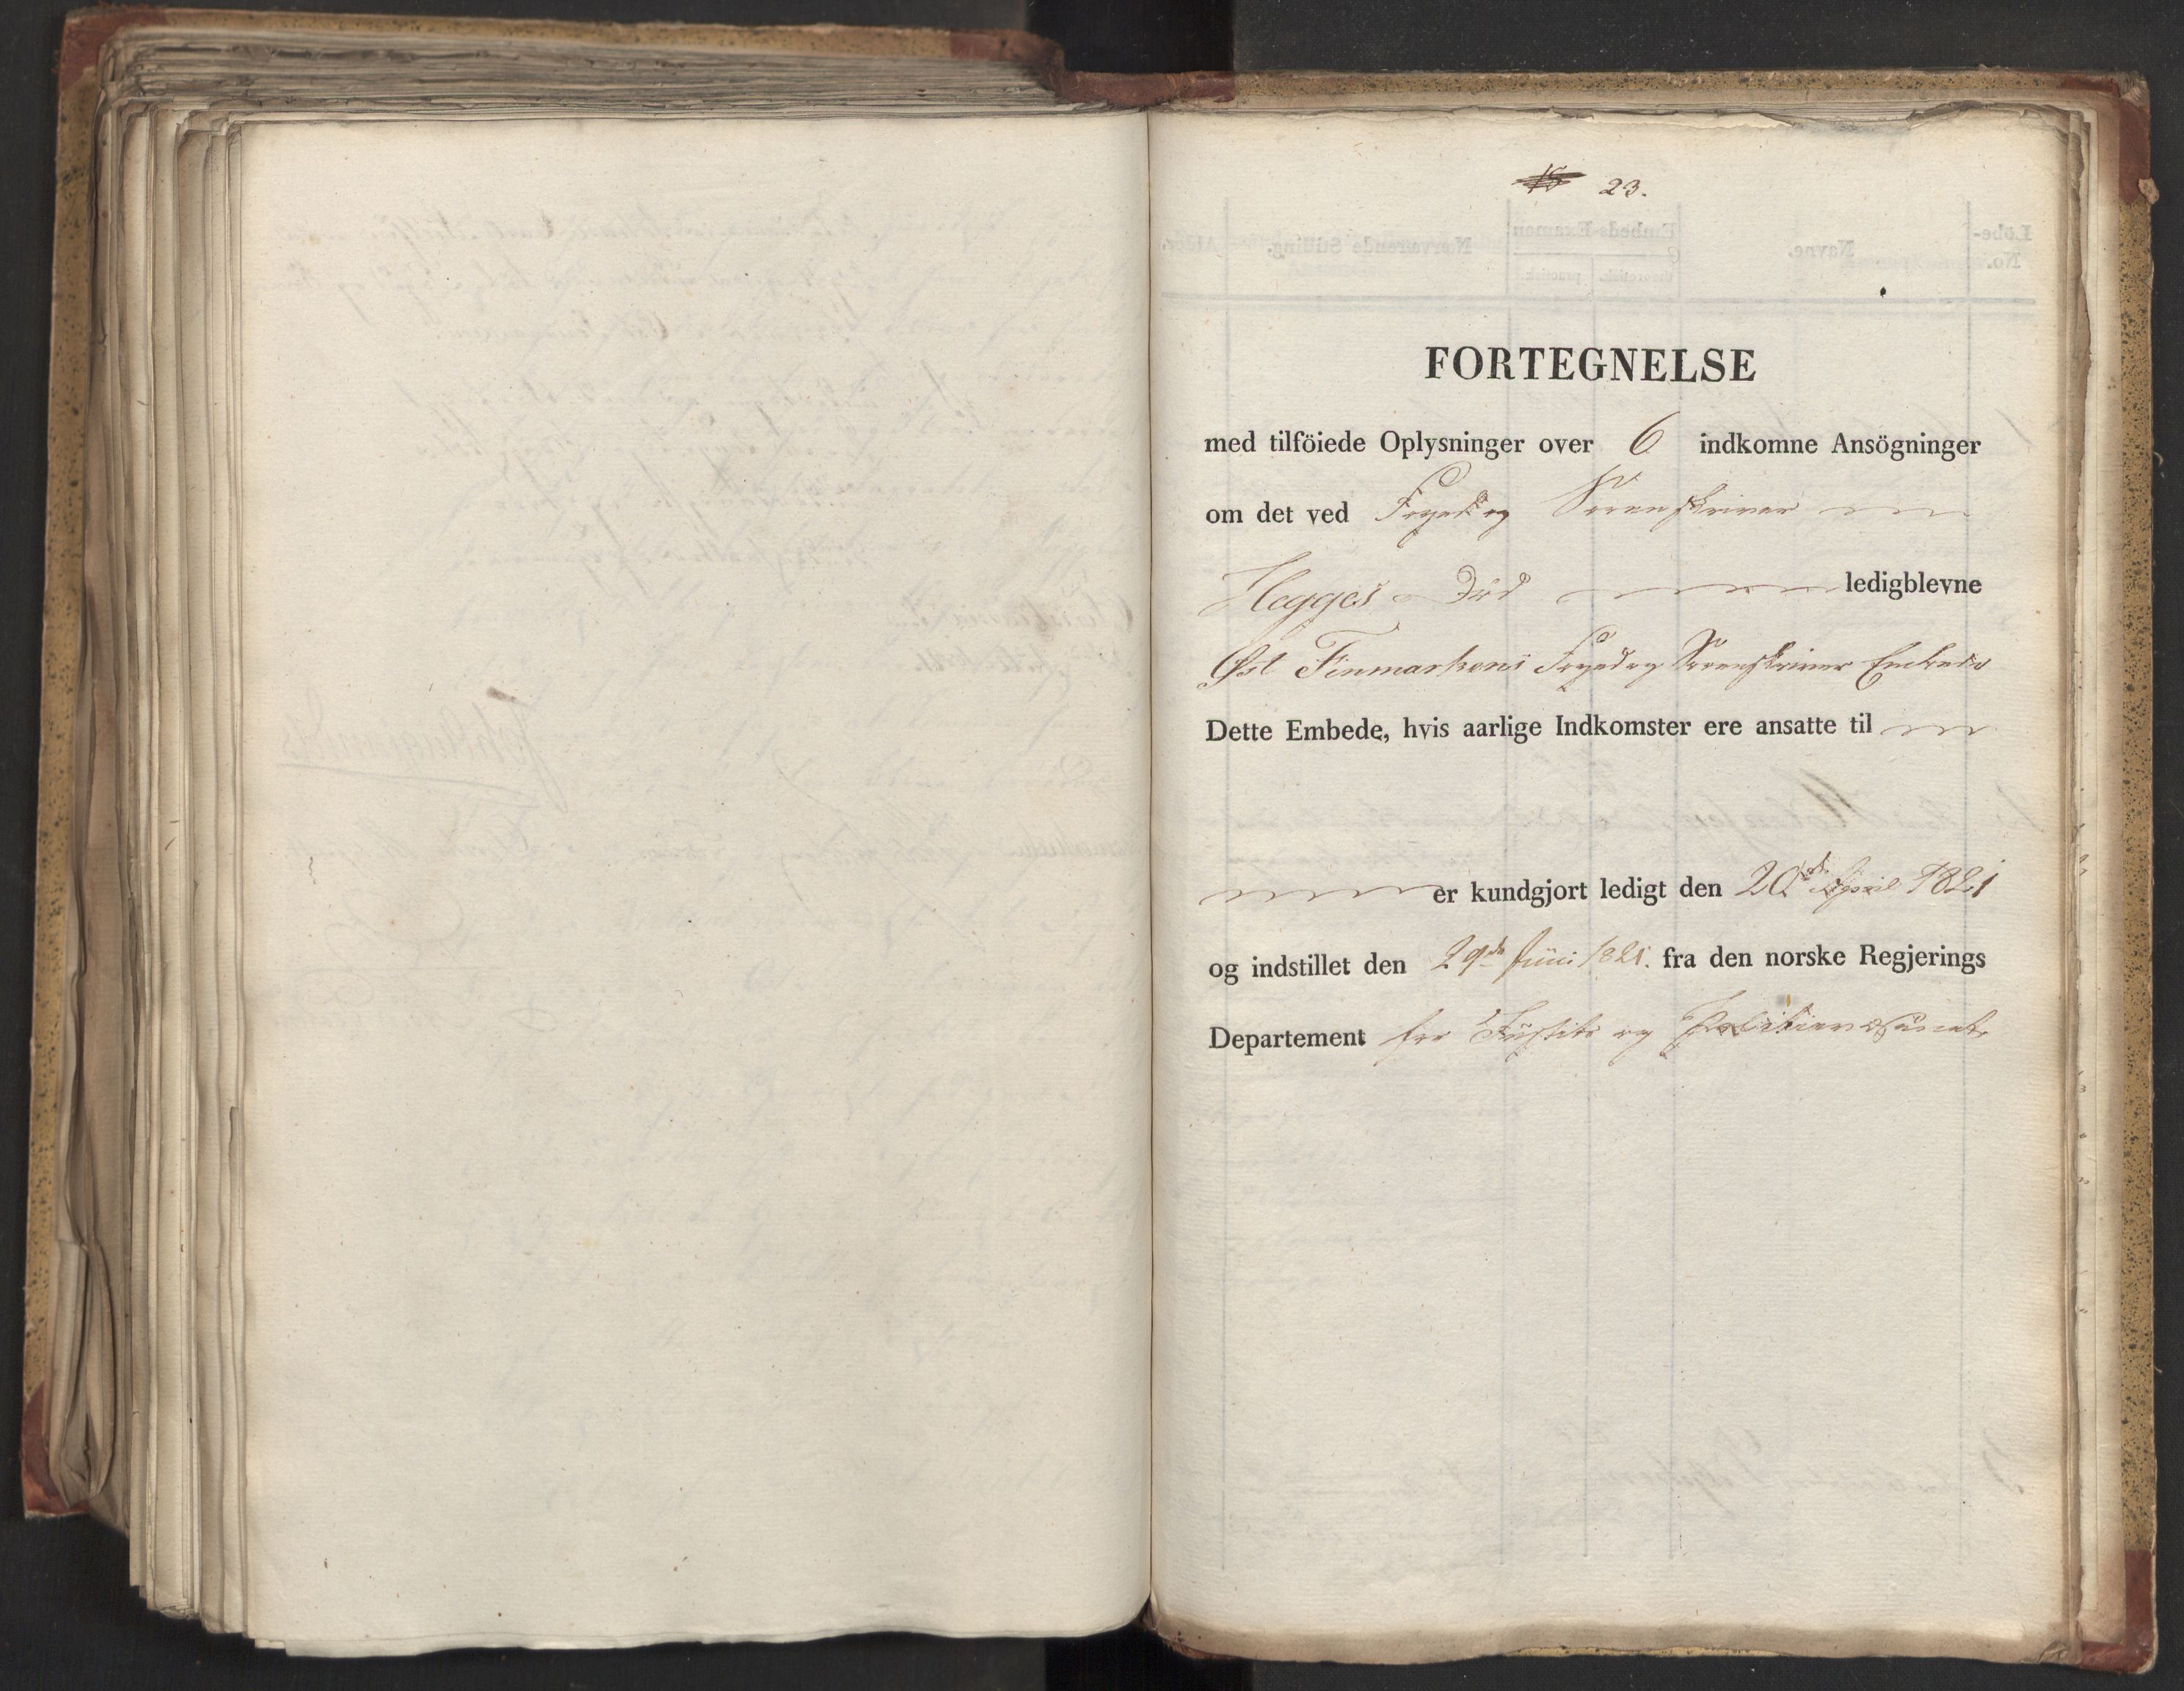 23.
FORTEGNELSE
med tilföiede Oplysninger over 6 indkomne Ansögninger
om det ved Foged og Sorenskriver
Hegges Död ledigblevne
Øst Finmarkens Foged og Sorenskriver Embede
Dette Embede, hvis aarlige Indkomster ere ansatte til
er kundgjort ledigt den 20de April 1821
og indstillet den 29de Juni 1821. fra den norske Regjerings
Departement for Justits og Politievæsenet